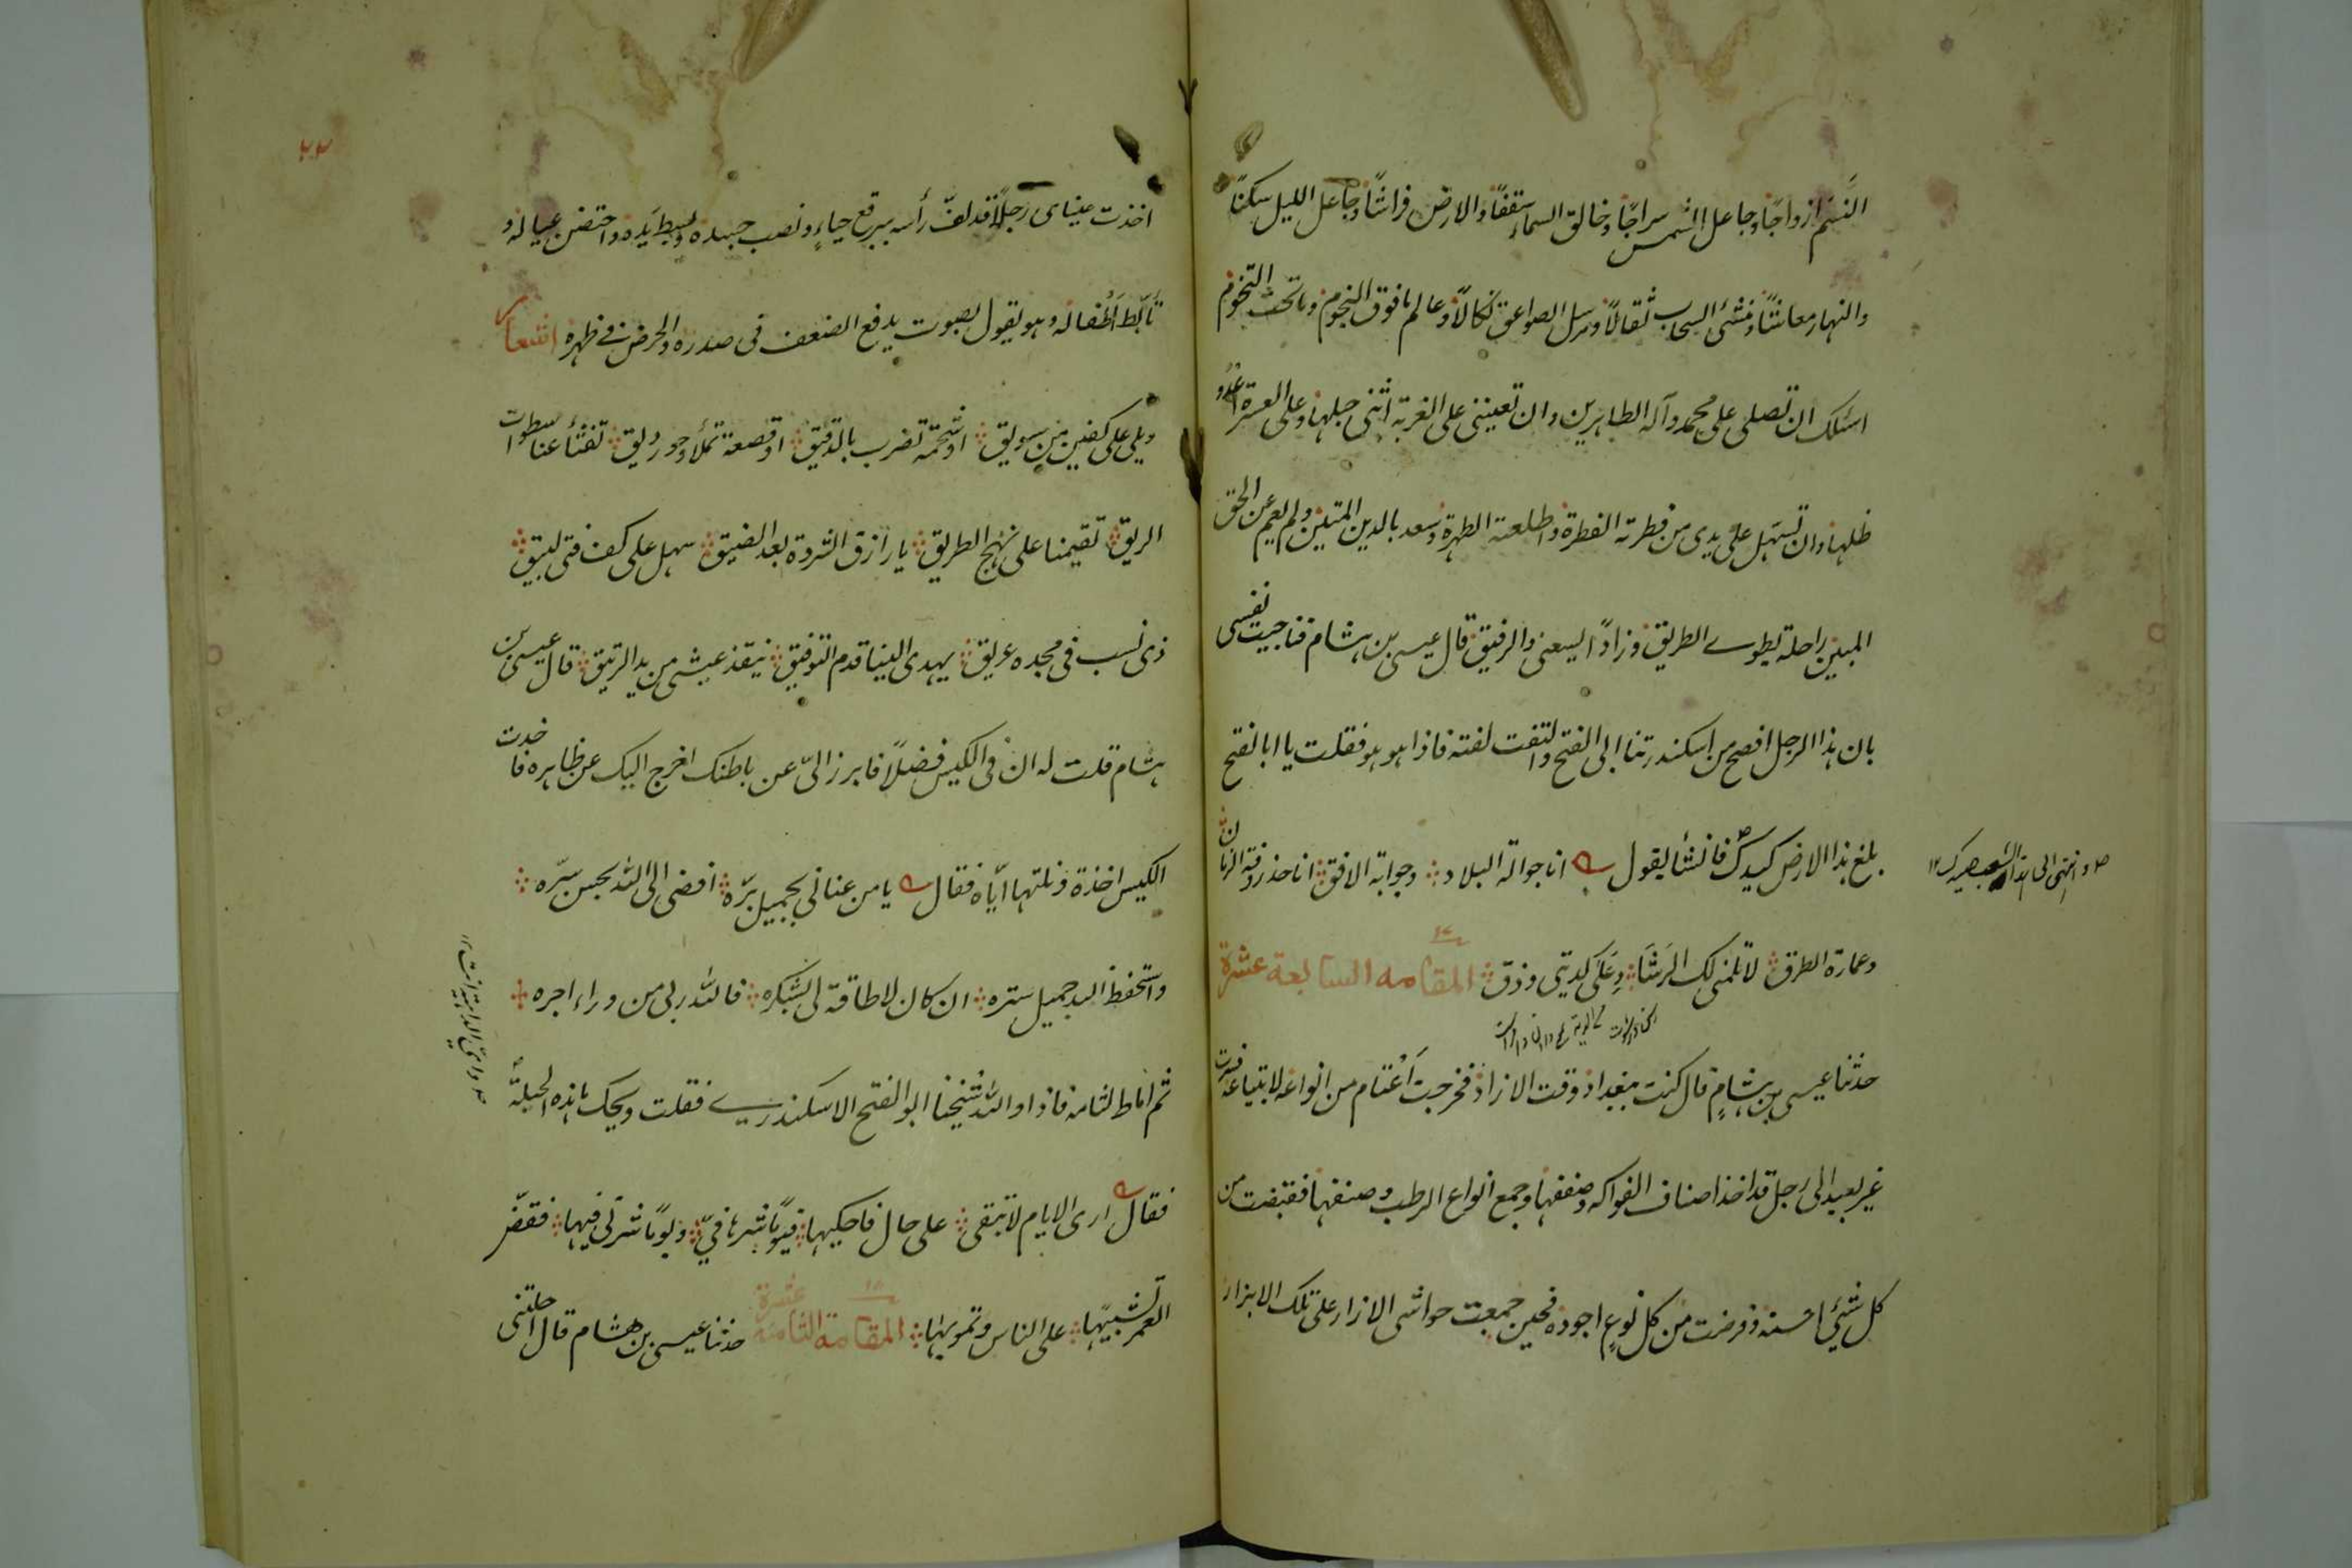 النسم ازواجًا وجاعل الشمس سراجًا وخالق السماء سقفًا والارض فراشًا وجاعل الليل سكنًا
والنهار معاشًا ومنشئ السحاب ثقالًا ومرسل الصواعق نكالًا وعالم ما فوق النجوم وما تحت التخوم
اسئلك ان تصلى على محمد وآله الطاهرين وان تعيننى على الغربة اثنى حبلها وعلى العسرة اعدو
ظلها وان تسهل على يدى من فطرته الفطرة واطلعته الطهرة وسعد بالدين المتين ولم يعم عن الحق
المبين راحلة يطوى الطريق وزادًا يسعنى والرفيق قال عيسى بن هشام فناجيت نفسى
بان هذا الرجل افصح من اسكندرتنا ابى الفتح والتفت لفتة فاذا هو هو فقلت يا ابا الفتح
بلغ هذا الارض كيدك فانشأ يقول انا جوالة البلاد وجوابة الافق انا خذروفة الزمان
وانتهى الى هذا الشعب صيدك ١٢
وعمارة الطرق لا تلمنى لك الرشا دعلى كديتى وذق المقامه السابعة عشرة
١٧
حدثنا عيسى بن هشام قال كنت ببغداد وقت الازاد فخرجت اعتام من انواعه لابتياعه فسرت
غير بعيد الى رجل قد اخذ اصناف الفواكه وصففها وجمع انواع الرطب وصنفها فقبضت من
كل شئ احسنه وقرضت من كل نوع اجوده فحين جمعت حواشى الازار على تلك الابزار
اخذت عيناى رجلًا قد لف رأسه ببرقع حياء ونصب جسده وبسط يده واحتضن عياله و
تأبط اطفاله وهو يقول بصوت يدفع الضعف فى صدره والحرض فى ظهره اشعار
ويلى على كفين من سويق او شحمة تضرب بالدقيق او قصعة تملأ وجور ريق تفثأ عنا سطوات
الريق تقيمنا على نهج الطريق يا رازق الثروة بعد الضيق سهل على كف فتى لبيق
ذى نسب فى مجده عريق يهدى الينا قدم التوفيق ينقذ عيشى من يد الرتيق قال عيسى بن
هشام قلت له ان فى الكيس فضلًا فابرز الىّ عن باطنك اخرج اليك عن ظاهره فاخذت
الكيس اخذة ونلتها اياه فقال يا من عنانى بجميل بره افضى الى الله بحسن سره
واستحفظ الله جميل ستره ان كان لا طاقة لى بشكره فالله ربى من وراء اجره
ثم اماط لثامه فاذا والله شيخنا ابو الفتح الاسكندرى فقلت ويحك ما هذه الحيلة
فقال ارى الايام لا تبقى على حال فاحكيها فيومًا شرها فىّ ويومًا شرتى فيها فقض
العمر تشبيها على الناس وتمويها المقامة الثامنة عشرة حدثنا عيسى بن هشام قال احلتنى
١٨